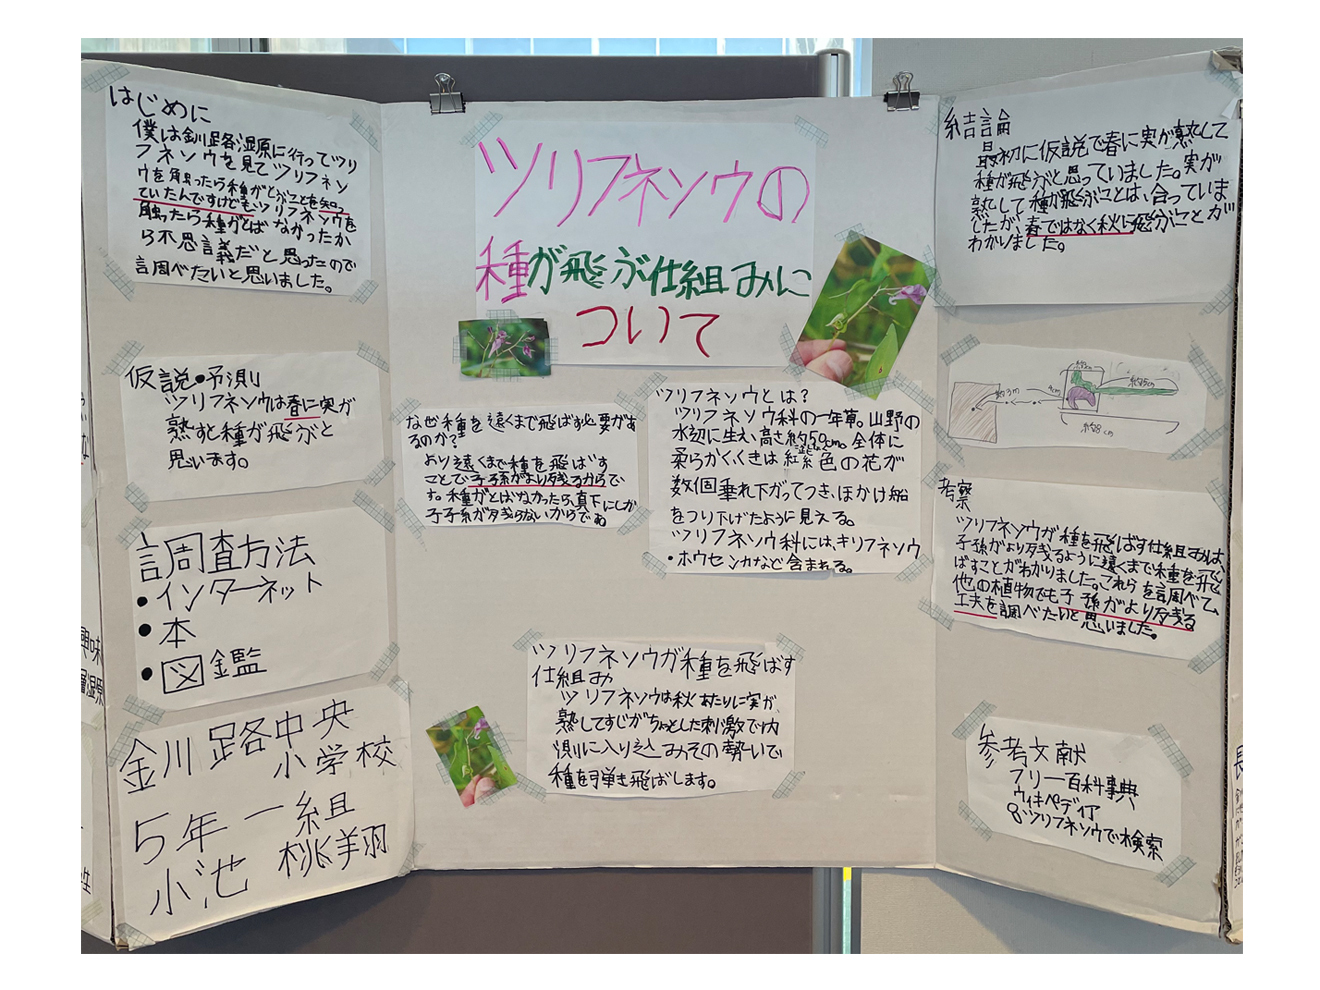 はじめに
僕は釧路湿原に行ってツリ
フネソウを見てツリフネソ
ウを触ったら種がとぶことを知っ
ていたんですけどもツリフネソウを
触ったら種がとばなかったか
ら不思議だと思ったので
調べたいと思いました。
仮説・予測
ツリフネソウは春に実が
熟すと種が飛ぶと
思います。
調査方法
・インターネット
・本
・図鑑
釧路中央
小学校
5年一組
小池 桃翔
ツリフネソウの
種が飛ぶ仕組みに
ついて
なぜ種を遠くまで飛ばす必要があ
るのか?
より遠くまで種を飛ばす
ことで子孫がより残るからで
す。種がとばなかったら、真下にしか
子孫が残らないからでね
ツリフネソウとは?
ツリフネソウ科の一年草。山野の
水辺に生え、高さ約50cm。全体に
柔らかく、くきは紅紫色の花が
数個垂れ下がってつき、ほかけ船
をつり下げたように見える。
ツリフネソウ科には、キリフネソウ
・ホウセンカなど含まれる。
ツリフネソウが種を飛ばす
仕組み
ツリフネソウは秋あたりに実が、
熟してすじがちょっとした刺激で内
測に入り込みその勢いで
種を弾き飛ばします。
結論
最初に仮説で春に実が熟して
種が飛ぶと思っていました。実が
熟して種が飛ぶことは、合っていま
したが、春ではなく秋に飛ぶことが
わかりました。
約3m
約8cm
考察
ツリフネソウが種を飛ばす仕組みは、
子孫がより残るように遠くまで種を飛
ばすことがわかりました。これらを調べて、
他の植物でも子孫がより残る
工夫を調べたいと思いました。
参考文献
フリー百科事典
ウィキペディア
8ツリフネソウで検索